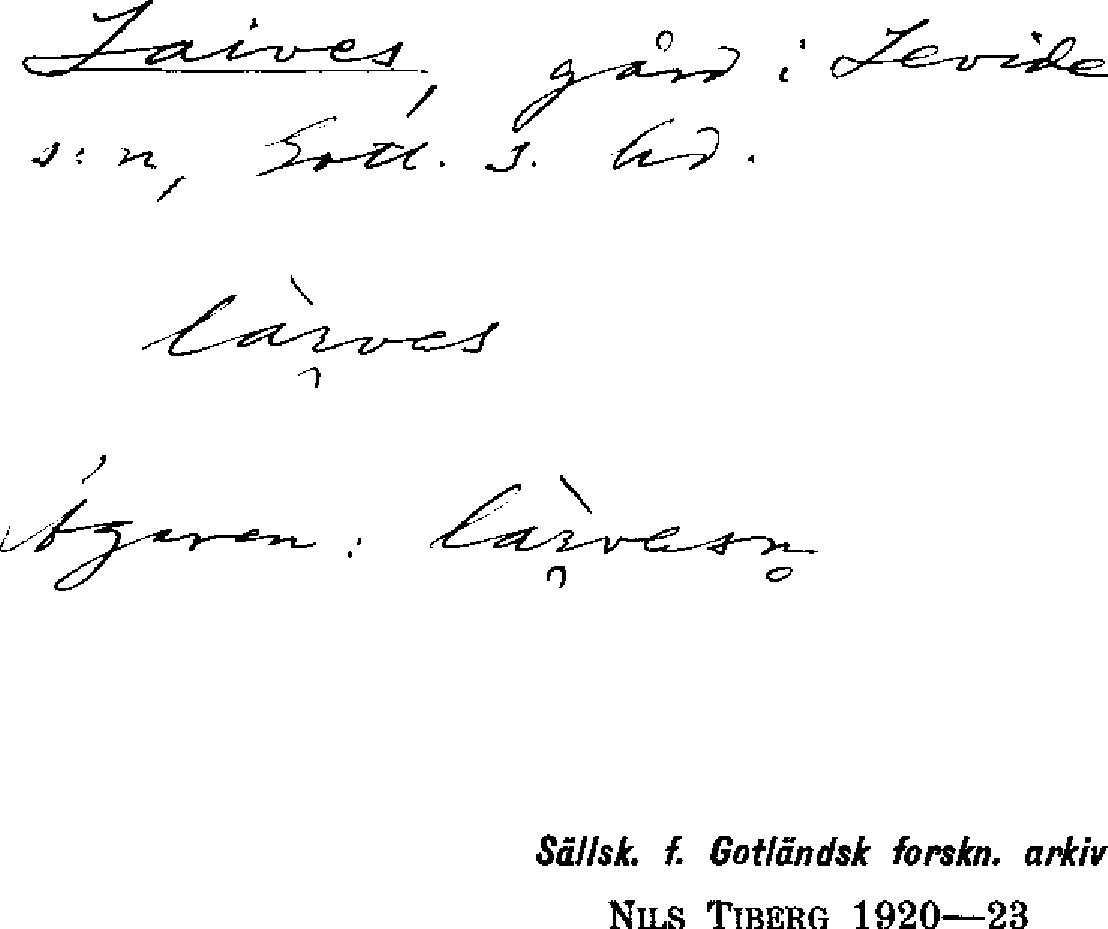 Laives, gård i Levide
s:n, Gotl. s. hd.
làı̯ves
Ägaren: làı̯vesn̥
Sällsk. f. Gotländsk forskn. arkiv
NILS TIBERG 1920—23